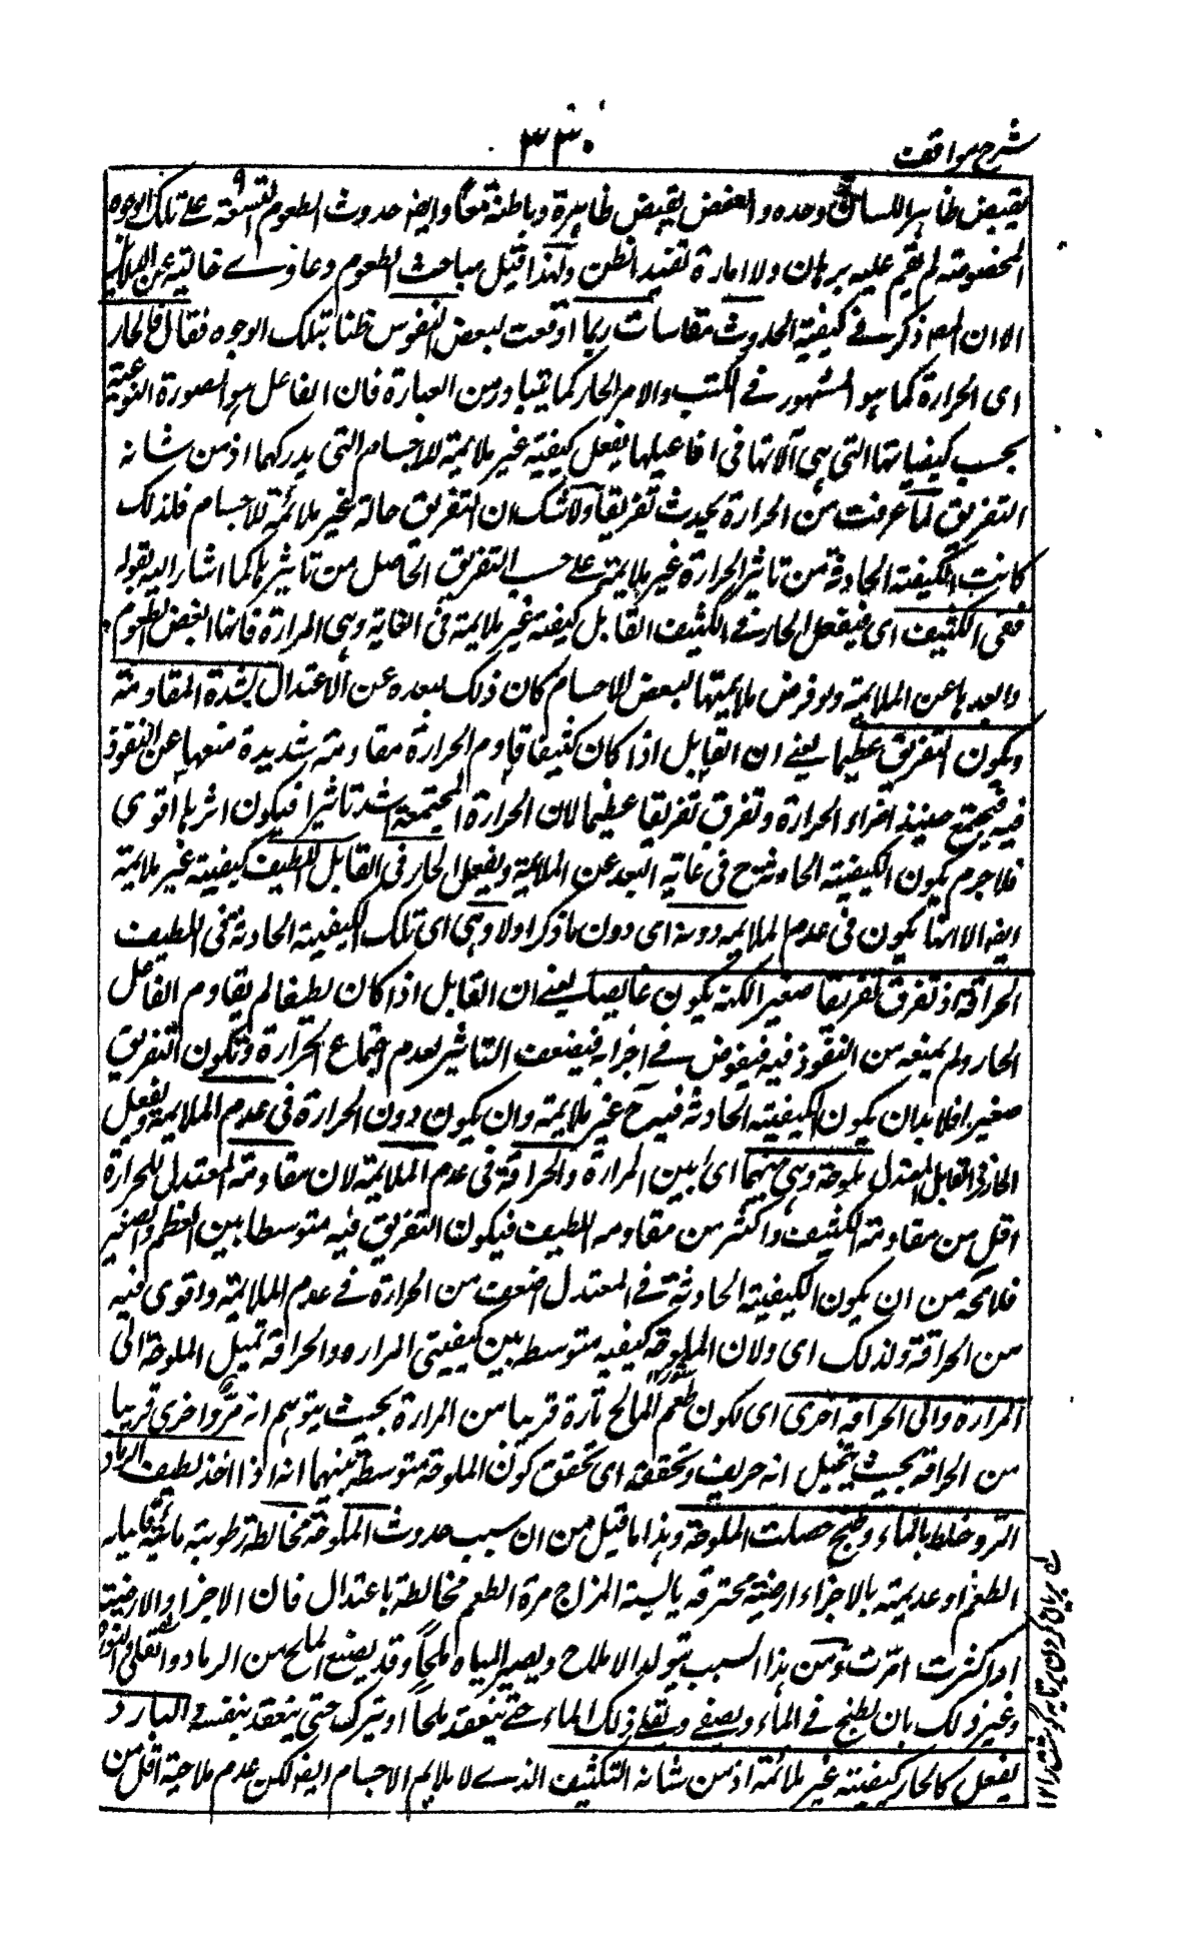 شرح مواقف
٣٣٠
يقبض ظاهر اللسان وحده والعفص يقبض ظاهره وباطنه معا وايضا حدوث الطعوم التسعة على تلك الوجوه
المخصوصة لم يقم عليه برهان ولا امارة تفيد الظن ولهذا قيل مباحث الطعوم دعاوى خالية عن الدلائل
الا ان المص ذكر في كيفية الحدوث مقاسات ربما اوقعت لبعض النفوس ظنا بتلك الوجوه فقال فالحار
اى الحرارة كما هو المشهور في الكتب والامر الحار كما يتبادر من العبارة فان الفاعل هو الصورة النوعية
بحسب كيفياتها التى هى آلاتها فى افاعيلها يفعل كيفية غير ملائمة للاجسام التى يدركها اذ من شانه
التفريق لما عرفت من ان الحرارة يحدث تفريقا ولا شك ان التفريق حالة غير ملائمة للاجسام فلذلك
كانت الكيفية الحادثة من تاثير الحرارة غير ملائمة على حسب التفريق الحاصل من تاثيرها كما اشار اليه بقوله
ففى الكثيف اى فيفعل الحار فى الكثيف القابل كيفية غير ملائمة فى الغاية وهى المرارة فانها ابغض الطعوم
وابعدها عن الملائمة ولو فرض ملائمتها لبعض الاجسام كان ذلك لبعده عن الاعتدال لشدة المقاومة
ويكون التفريق عظيما يعنى ان القابل اذا كان كثيفا قاوم الحرارة مقاومة شديدة منعها عن النفوذ
فيه فيجتمع حينئذ اجزاء الحرارة وتفرق تفريقا عظيما لان الحرارة المجتمعة اشد تاثيرا فيكون اثرها اقوى
فلا جرم يكون الكيفية الحادثة ح فى غاية البعد عن الملائمة ويفعل الحار فى القابل اللطيف كيفية غير ملائمة
ايضا الا انها يكون فى عدم الملائمة دونه اى دون ما ذكر اولا وهى اى تلك الكيفية الحادثة فى اللطيف
الحرافة اذ تفرق تفريقا صغيرا لكنه يكون غايصا يعنى ان القابل اذا كان لطيفا لم يقاوم الفاعل
الحار ولم يمنعه من النفوذ فيه فيغوص فى اجزائه فيضعف التاثير لعدم اجتماع الحرارة ويكون التفريق
صغيرا فلا بد ان يكون الكيفية الحادثة فيه ح غير ملائمة وان يكون دون الحرارة فى عدم الملائمة ويفعل
الحار فى القابل المعتدل ملوحة وهى بينهما اى بين المرارة والحرافة فى عدم الملائمة لان مقاومة المعتدل للحرارة
اقل من مقاومة الكثيف واكثر من مقاومة اللطيف فيكون التفريق فيه متوسطا بين العظم والصغر
فلا محة من ان يكون الكيفية الحادثة فى المعتدل اضعف من الحرارة فى عدم الملائمة واقوى فيه
من الحرافة ولذلك اى ولان الملوحة كيفية متوسطة بين كيفيتى المرارة والحرافة تميل الملوحة الى
المرارة والى الحرافة اخرى اى لكون طعم المالح تارة قريبا من المرارة بحيث يتوهم انه مر واخرى قريبا
من الحرافة بحيث يتخيل انه حريف وتحققه اى تحقق كون الملوحة متوسطة بينهما انه اذا اخذ لطيف الرماد
المر وخلط بالماء وطبخ حصلت الملوحة وهذا ما قيل من ان سبب حدوث الملوحة مخالطة رطوبة مائية قليلة
الطعم او عديمته بالاجزاء ارضية محترقة يابسة المزاج مرة الطعم مخالطة باعتدال فان الاجزاء الارضية
اذا كثرت امرت ومن هذا السبب يتولد الاملاح ويصير المياه ملحا وقد يصنع الملح من الرماد والقلى والنورة
وغير ذلك بان يطبخ فى الماء ويصفى ويغلى ذلك الماء حتى ينعقد ملحا او يترك حتى ينعقد بنفسه والبارد
يفعل كالحار كيفية غير ملائمة اذ من شانه التكثيف الذى لا يلايم الاجسام ايضا لكن عدم ملائمته اقل من